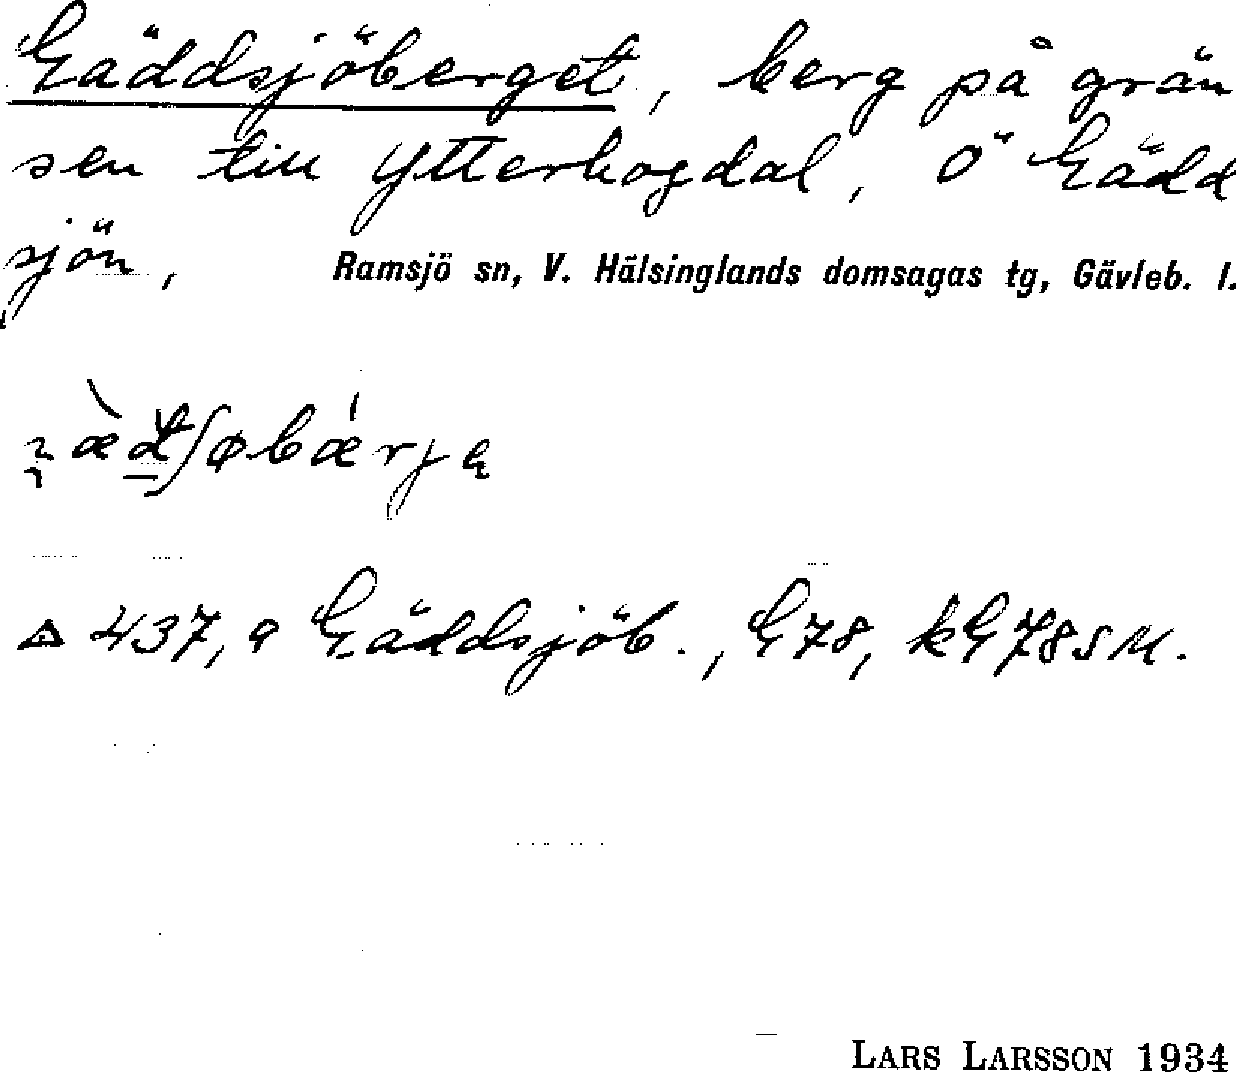 Gäddsjöberget, berg på grän
sen till Ytterhogdal, Ö Gädd
sjön, Ramsjö sn, V. Hälsinglands domsagas tg, Gävleb. l.
△ 437,9 Gäddsjöb., G78, kG78SM.
LARS LARSSON 1934